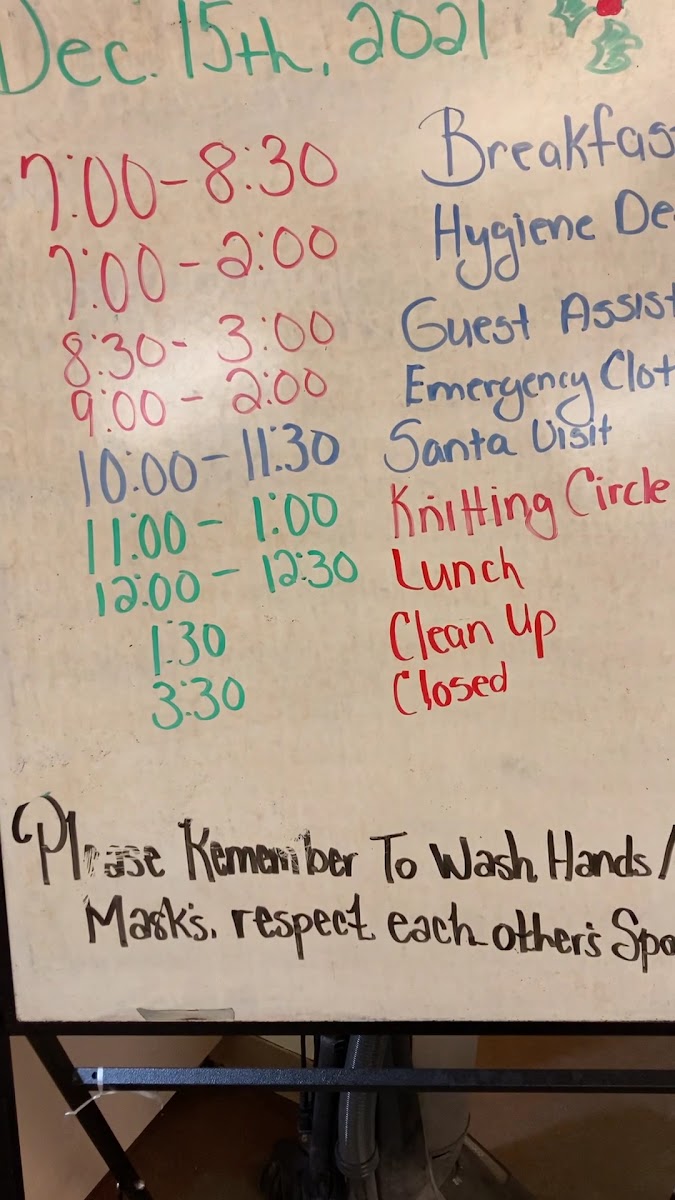 Dec. 15th, 2021
7:00 - 8:30 Breakfas
7:00 - 2:00 Hygiene De
8:30 - 3:00 Guest Assist
9:00 - 2:00 Emergency Clot
10:00 - 11:30 Santa Visit
11:00 - 1:00 Knitting Circle
12:00 - 12:30 Lunch
1:30 Clean Up
3:30 Closed
Please Remember To Wash Hands/
Mask's. respect each other's Spa